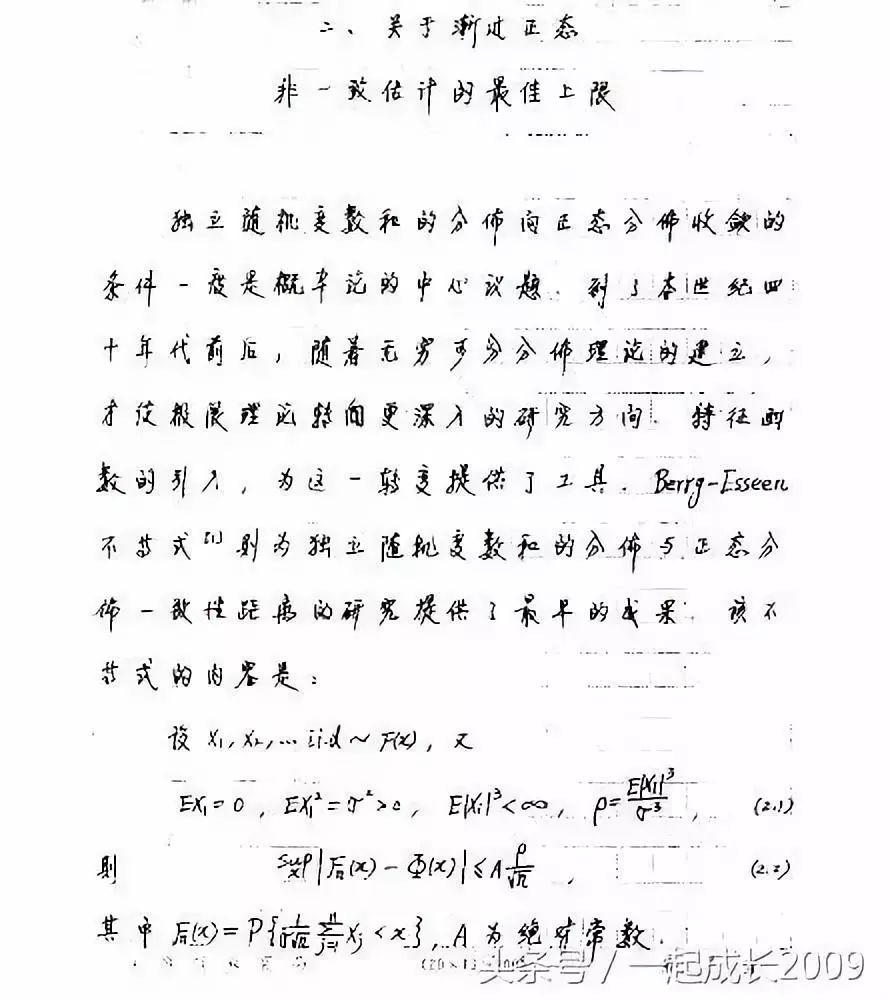 二、关于渐近正态
非一致估计的最佳上限
独立随机变数和的分佈向正态分佈收敛的
条件一度是概率论的中心议题.到了本世纪四
十年代前后,随着无穷可分分佈理论的建立,
才使极限理论转向更深入的研究方向.特征函
数的引入,为这一转变提供了工具.Berry-Esseen
不等式[1]则为独立随机变数和的分佈与正态分
佈一致性距离的研究提供了最早的成果.该不
等式的内容是:
设 X₁,X₂,… iid ~ F(x),又
EX₁=0, EX₁²=σ²>0, E|X₁|³<∞, ρ=E|X₁|³/σ³, (2.1)
则 sup_x|Fₙ(x)-Φ(x)|≤A ρ/√n, (2.2)
其中 Fₙ(x)=P{1/(σ√n) ∑_{j=1}^n X_j<x},A为绝对常数.
头条号/一起成长2009